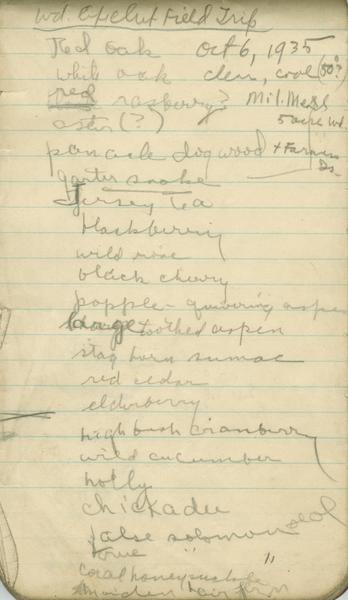 Wd. Ex Club Field Trip
Red oak Oct 6, 1935
white oak clear, cool (50°?)
red raspberry? Mil. Mess
aster (?) 5 acre wd.
panacle dogwood + Farm
garter snake
Jersey tea
blackberry
wild rose
black cherry
popple - quivering aspen
large toothed aspen
stag horn sumac
red cedar
elderberry
high bush cranberry
wild cucumber
holly
chickadee
false solomon seal
true " "
coral honeysuckle
maiden hair fern